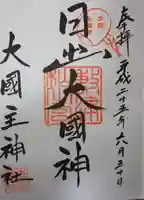 奉拝 平成二十五年六月三十日
日出大國神
大國主神社